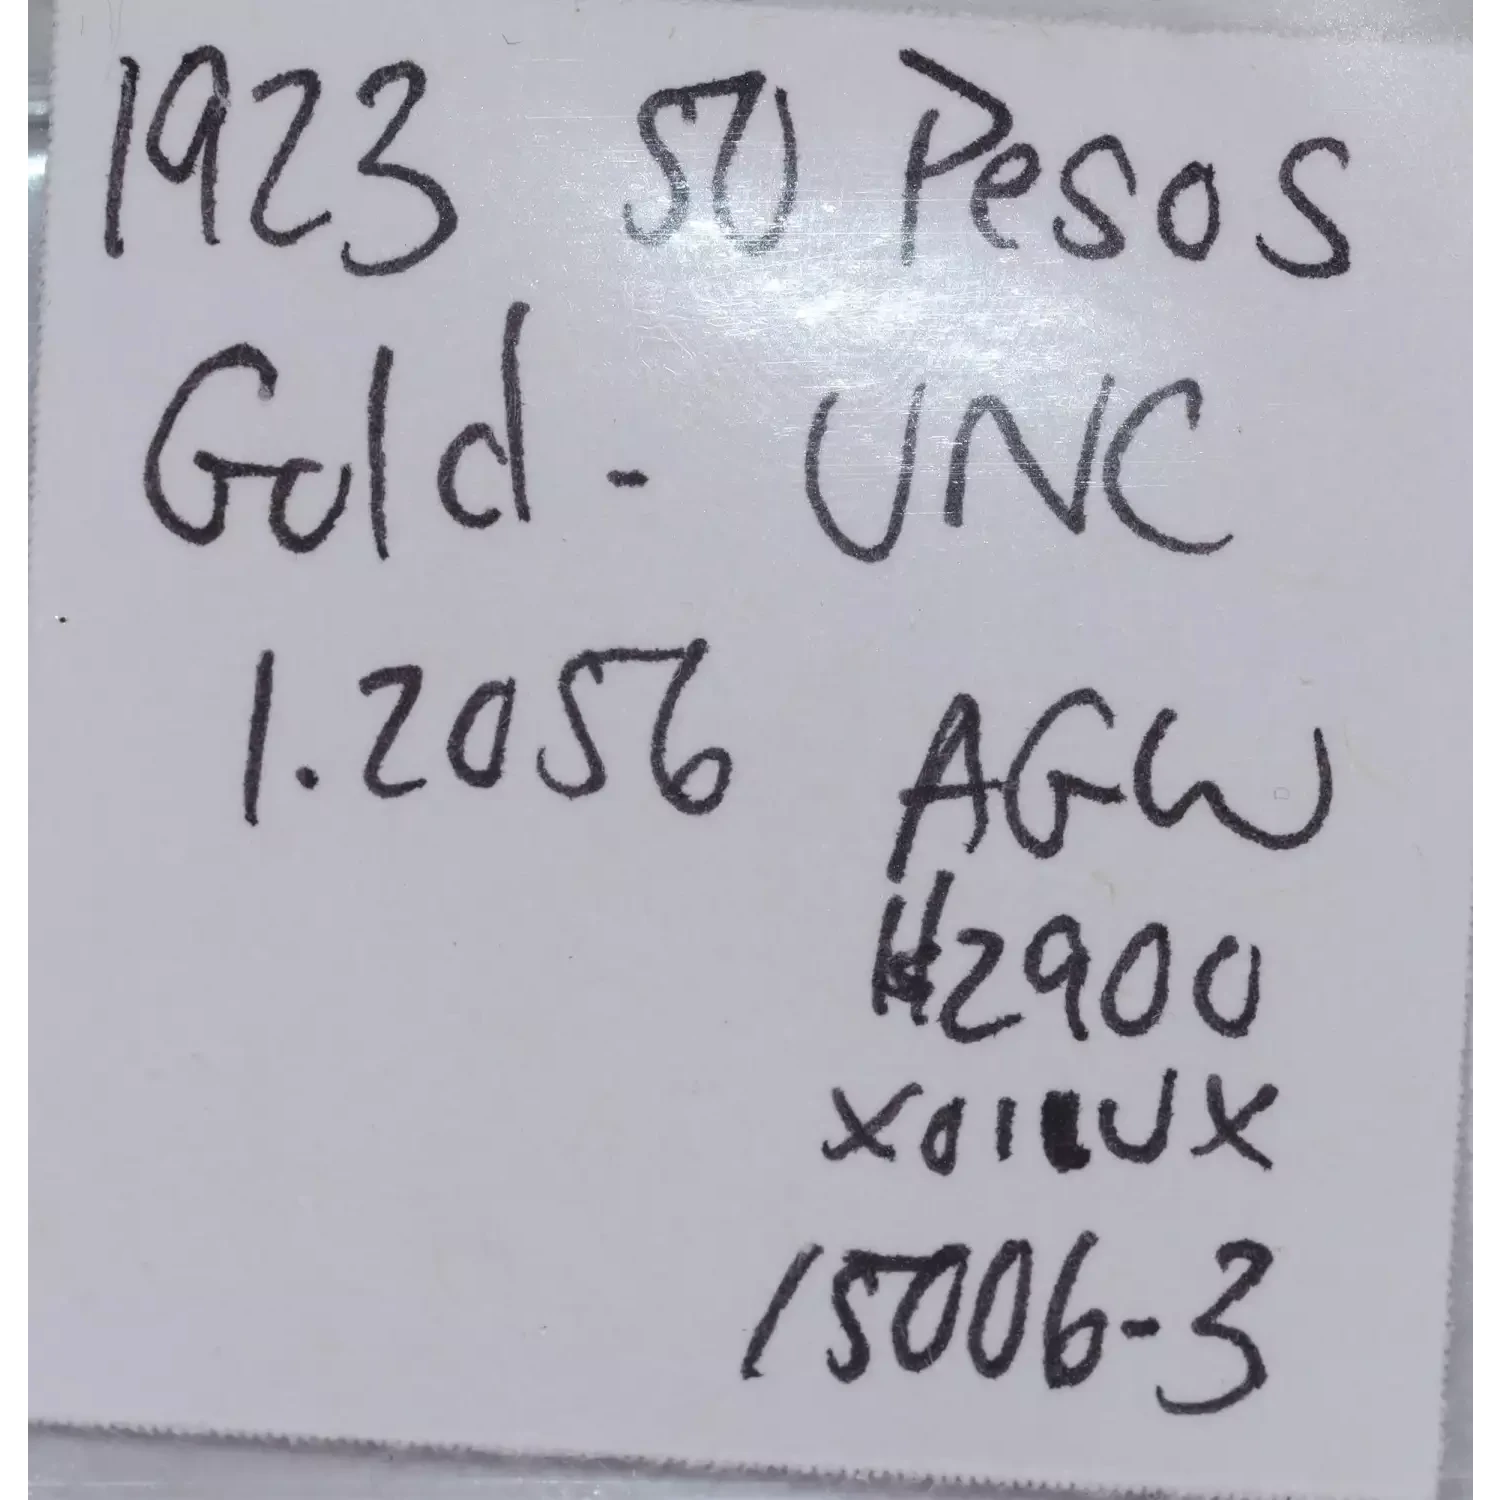 1923 50 Pesos
Gold - UNC
1.2056 AGW
H2900
15006-3